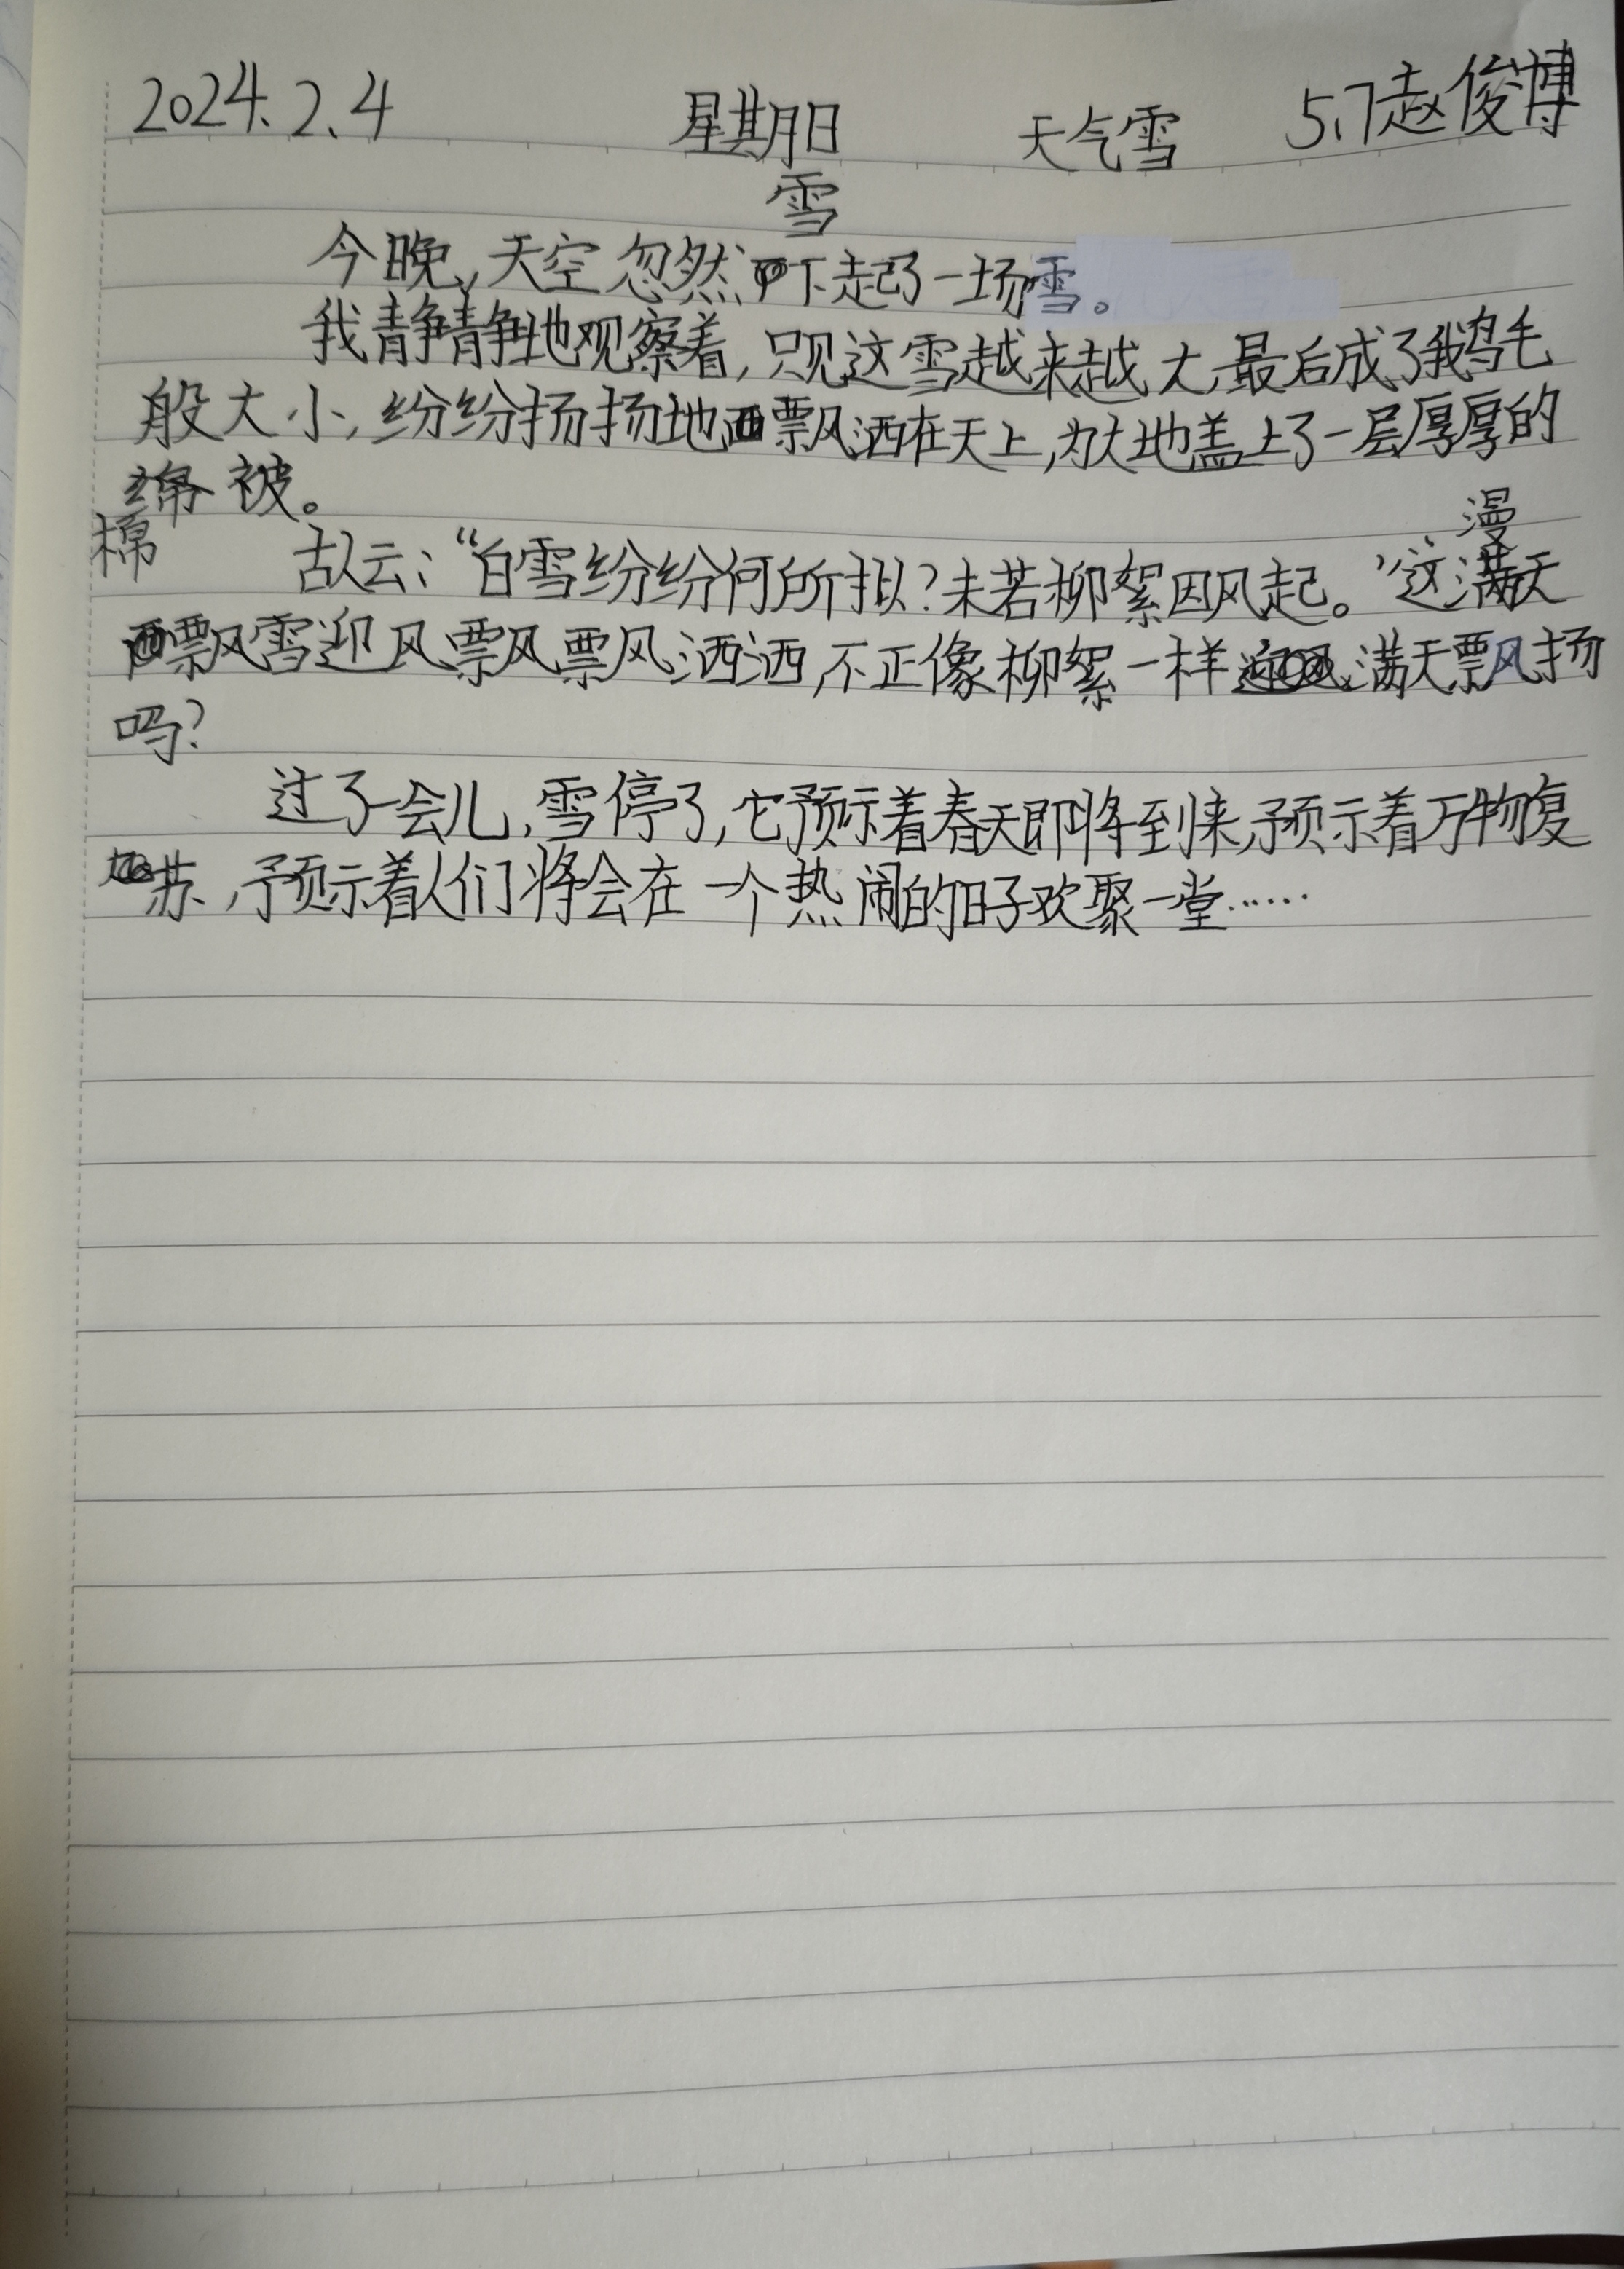 2024.2.4 星期日 天气雪 5.7赵俊博
雪
今晚,天空忽然下起了一场雪。
我静静地观察着,只见这雪越来越大,最后成了鹅毛
般大小,纷纷扬扬地飘洒在天上,为大地盖上了一层厚厚的
棉被。
古人云:“白雪纷纷何所拟?未若柳絮因风起。”这漫天
飘雪迎风飘飘洒洒,不正像柳絮一样满天飘扬
吗?
过了一会儿,雪停了,它预示着春天即将到来,预示着万物复
苏,预示着人们将会在一个热闹的日子欢聚一堂……